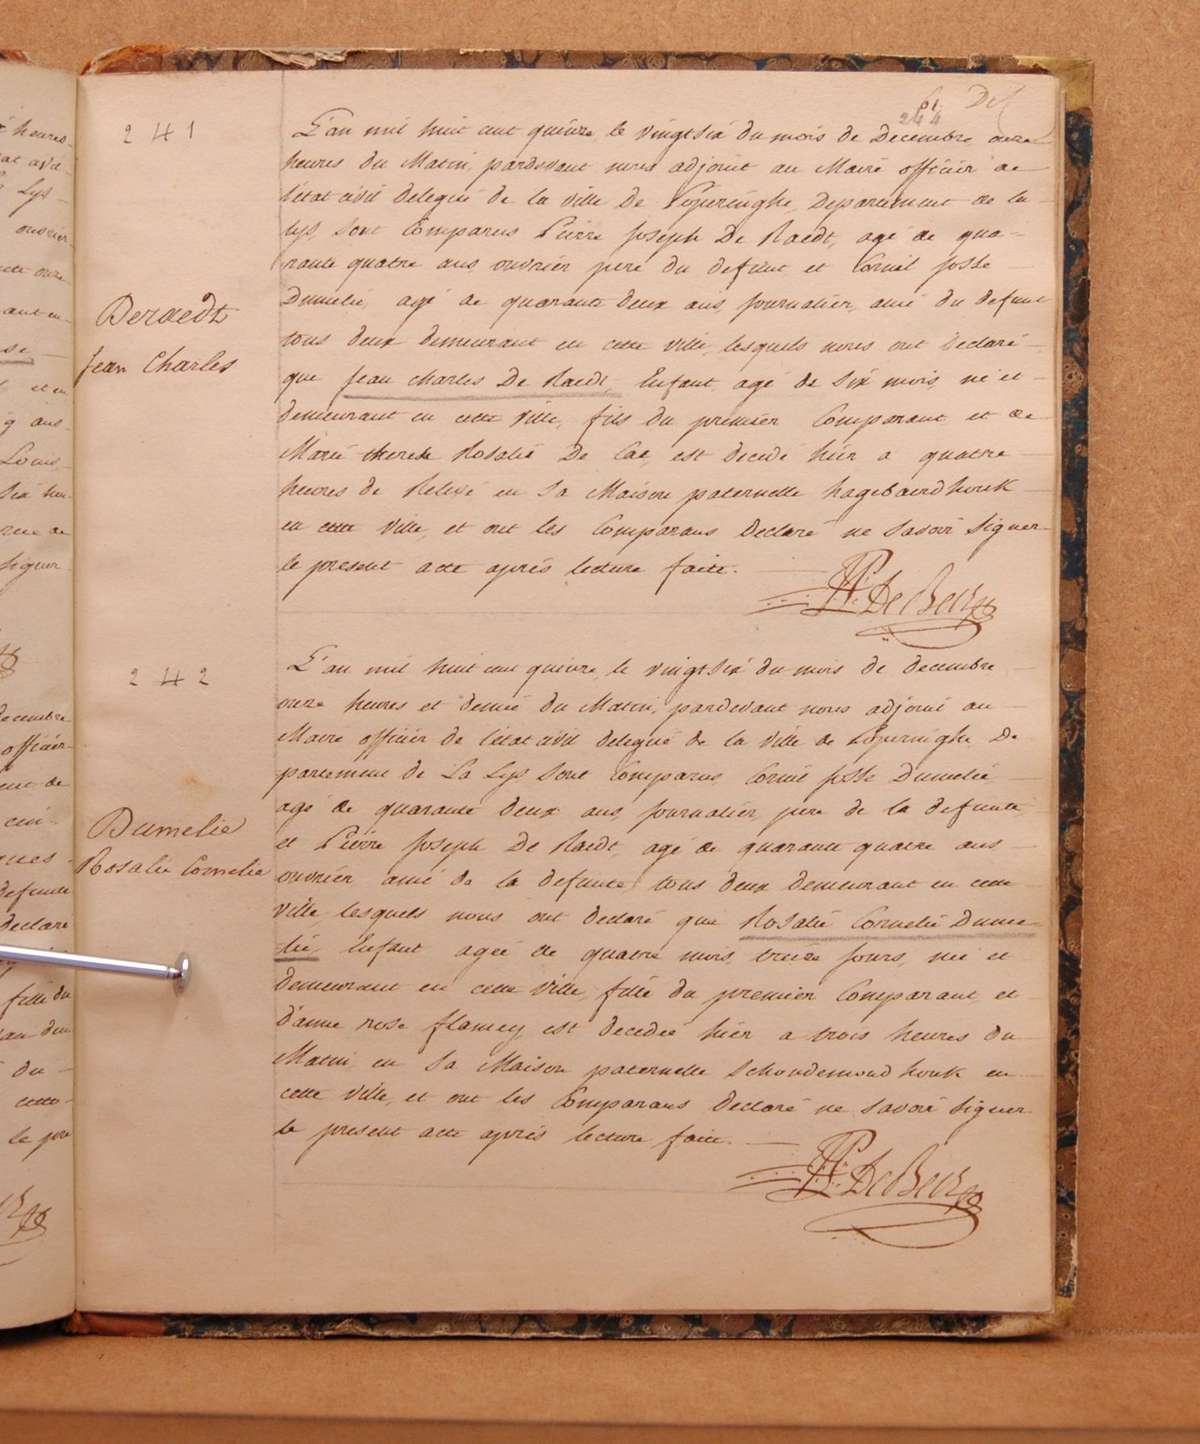 61. Def
244
241
L'an mil huit cent quinze, le vingtsix du mois de Decembre, onze
heures du Matin, pardevant nous adjoint au Maire officier de
l'état civil délégué de la ville de Poperinghe, Departement de la
Lys, sont Comparus Pierre Joseph De Raedt, agé de qua-
rante quatre ans, ouvrier pere du defunt, et Cornil Josse
Dumelie, agé de quarante deux ans, journalier, ami du defunt
tous deux demeurant en cette ville, lesquels nous ont Declaré
Deraedt
Jean Charles
que Jean Charles De Raedt, Enfant, agé de six mois, né et
demeurant en cette ville, fils du premier Comparant et de
Marie therese Rosalie De Cae, est décédé hier a quatre
heures de Relevé en sa Maison paternelle hagebaerdhouk
en cette ville, et ont les Comparans Declaré ne savoir signer
le present acte après lecture faite.
De Beir
242
L'an mil huit cent quinze, le vingtsix du mois de decembre
onze heures et demie du Matin, pardevant nous adjoint au
Maire officier de l'état civil delegué de la ville de Poperinghe, De
partement de La Lys sont Comparus, Cornil Josse Dumelie
agé de quarante deux ans, journalier, pere de la defunte
Dumelie
Rosalie Cornelie
et Pierre Joseph De Raedt, agé de quarante quatre ans
ouvrier ami de la defunte, tous deux demeurant en cette
ville lesquels nous ont declaré que Rosalie Cornelie Dume-
lie, Enfant agée de quatre mois, treize jours, née et
demeurant en cette ville, fille du premier Comparant, et
d'anne rose flamey, est decedée hier a trois heures du
Matin, en sa Maison paternelle Schoudemondhouk en
cette ville, et ont les Comparans Declaré ne savoir signer
le present acte après lecture faite.
De Beir